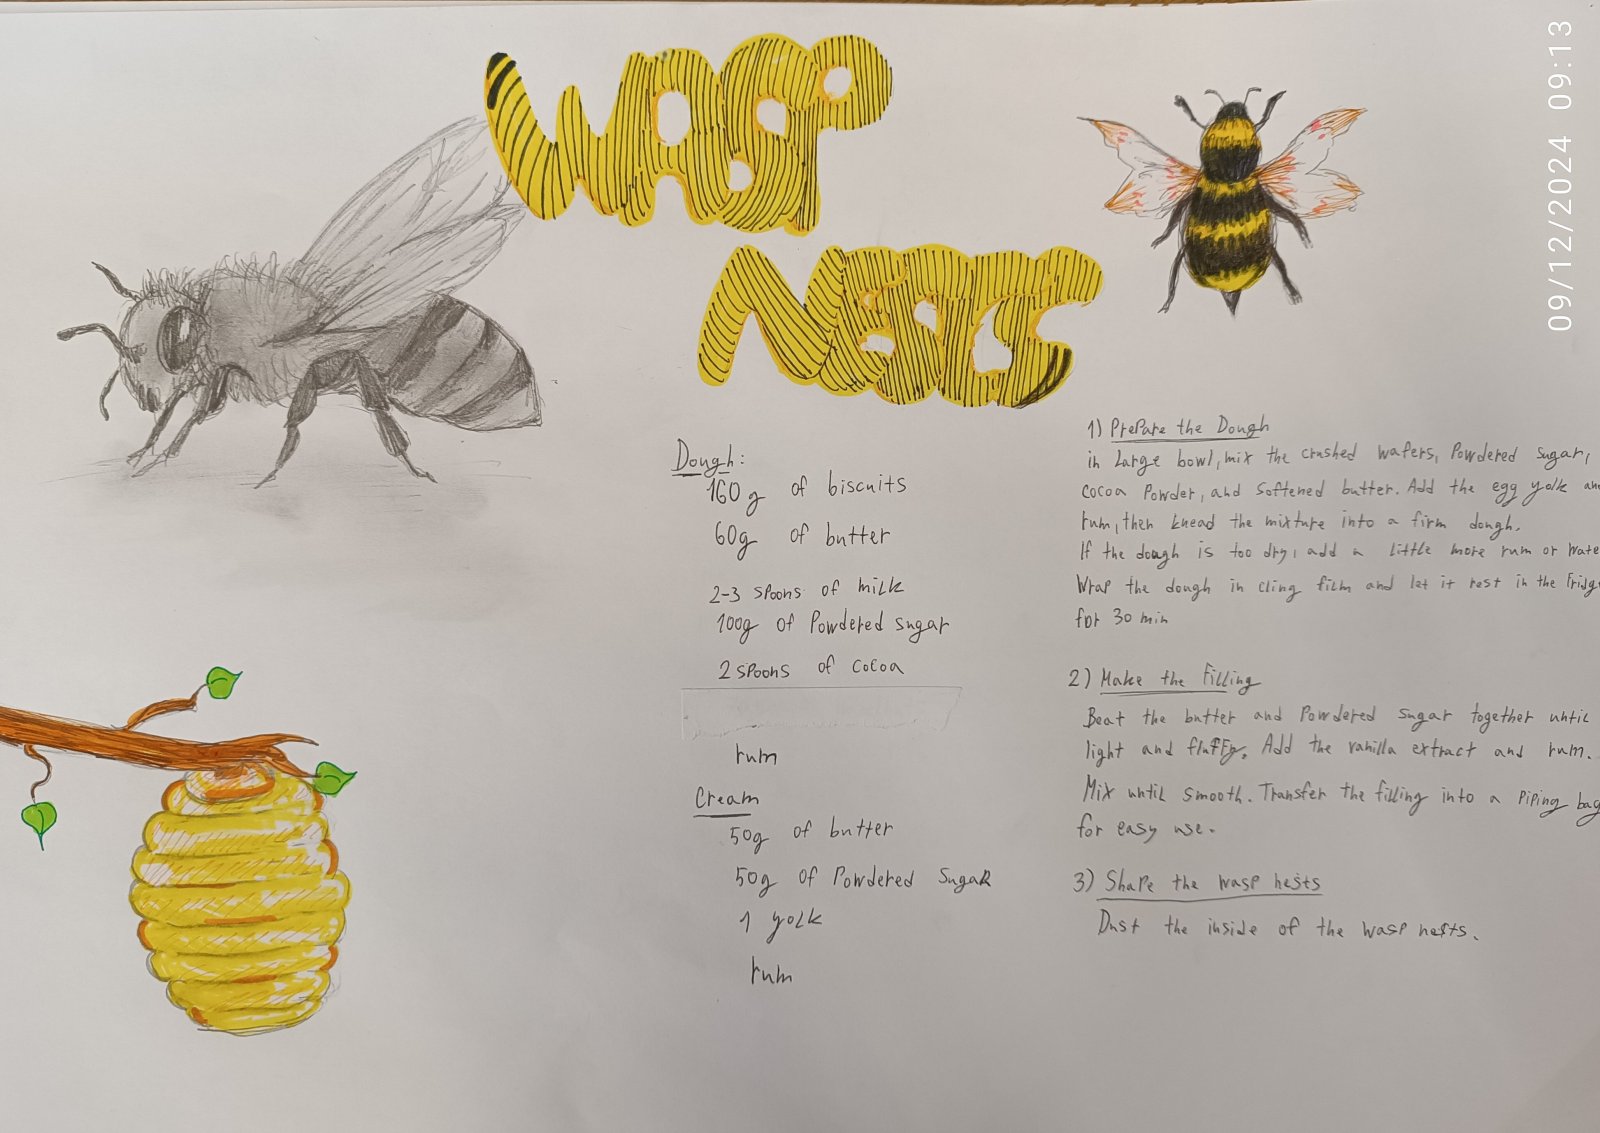 WASP
NESTS
09/12/2024 09:13
Dough:
160g of biscuits
60g of butter
2-3 spoons of milk
100g of Powdered sugar
2 spoons of cocoa
rum
Cream
50g of butter
50g of Powdered Sugar
1 yolk
rum
1) Prepare the Dough
in Large bowl, mix the crushed wafers, Powdered Sugar,
cocoa Powder, and Softened butter. Add the egg yolk
rum, then knead the mixture into a firm dough.
If the dough is too dry, add a little more rum or
Wrap the dough in cling film and let it rest in the
for 30 min
2) Make the Filling
Beat the butter and Powdered Sugar together until
light and fluffy. Add the vanilla extract and rum.
Mix until smooth. Transfer the filling into a Piping bag
for easy use.
3) Shape the wasp nests
Dust the inside of the wasp nests.